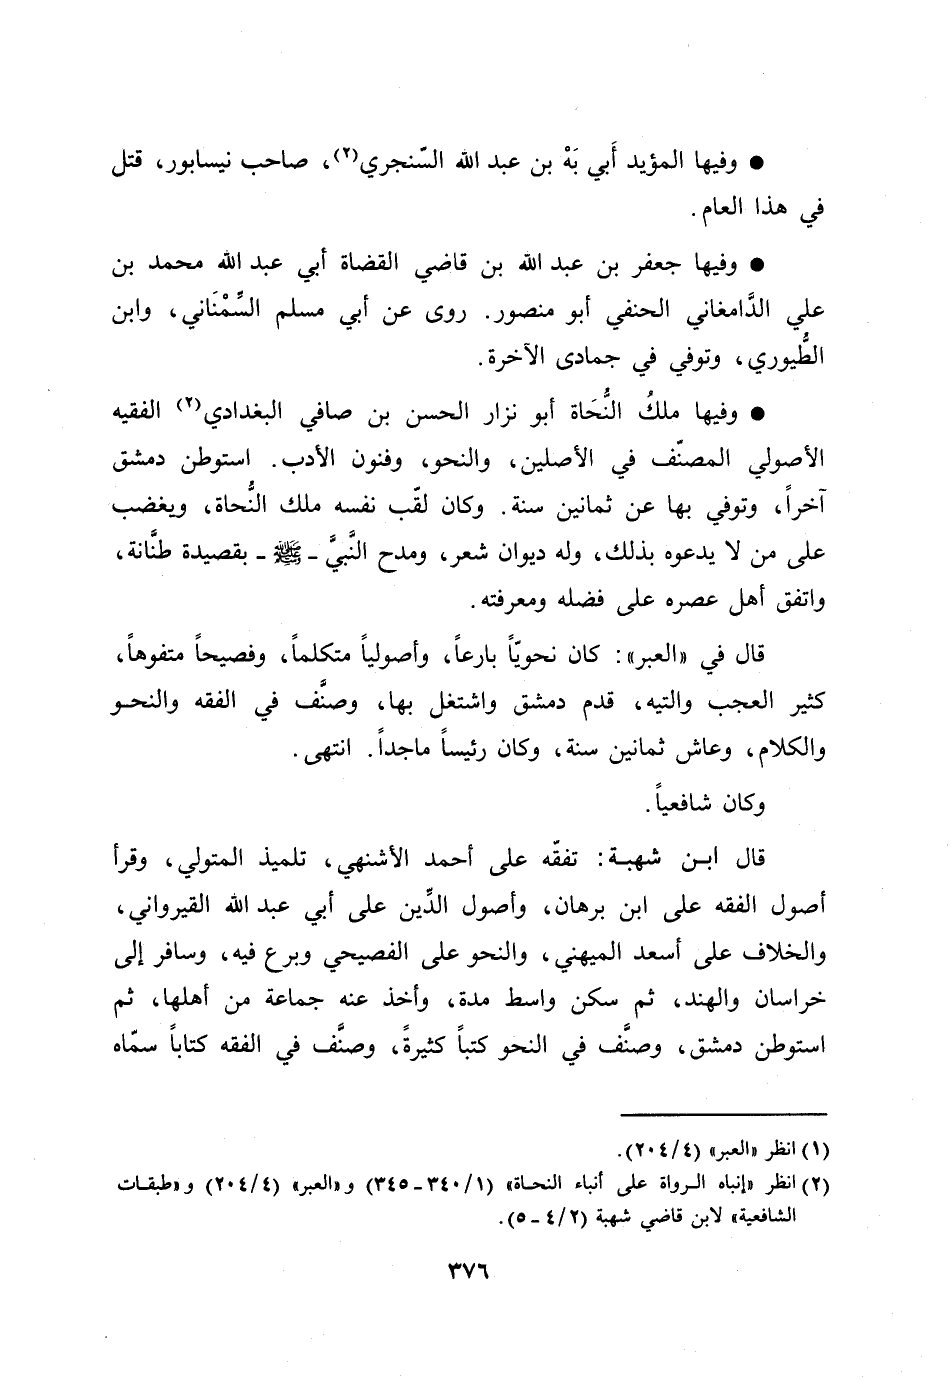 ● وفيها المؤيد أَبي بَهْ بن عبد الله السّنجري(٢)، صاحب نيسابور، قتل
في هذا العام.
● وفيها جعفر بن عبد الله بن قاضي القضاة أبي عبد الله محمد بن
علي الدَّامغاني الحنفي أبو منصور. روى عن أبي مسلم السِّمْنَاني، وابن
الطُّيوري، وتوفي في جمادى الآخرة.
● وفيها ملكُ النُّحَاة أبو نزار الحسن بن صافي البغدادي(٢) الفقيه
الأصولي المصنّف في الأصلين، والنحو، وفنون الأدب. استوطن دمشق
آخراً، وتوفي بها عن ثمانين سنة. وكان لقّب نفسه ملك النُّحاة، ويغضب
على من لا يدعوه بذلك، وله ديوان شعر، ومدح النَّبيَّ ـ ﷺ ـ بقصيدة طنَّانة،
واتفق أهل عصره على فضله ومعرفته.
قال في «العبر»: كان نحويّاً بارعاً، وأصولياً متكلماً، وفصيحاً متفوهاً،
كثير العجب والتيه، قدم دمشق واشتغل بها، وصنَّف في الفقه والنحو
والكلام، وعاش ثمانين سنة، وكان رئيساً ماجداً. انتهى.
وكان شافعياً.
قال ابن شهبة: تفقّه على أحمد الأشنهي، تلميذ المتولي، وقرأ
أصول الفقه على ابن برهان، وأصول الدِّين على أبي عبد الله القيرواني،
والخلاف على أسعد الميهني، والنحو على الفصيحي وبرع فيه، وسافر إلى
خراسان والهند، ثم سكن واسط مدة، وأخذ عنه جماعة من أهلها، ثم
استوطن دمشق، وصنَّف في النحو كتباً كثيرةً، وصنَّف في الفقه كتاباً سمّاه
(١) انظر «العبر» (٢٠٤/٤).
(٢) انظر «إنباه الرواة على أنباء النحاة» (٣٤٠/١ـ٣٤٥) و«العبر» (٢٠٤/٤) و«طبقات
الشافعية» لابن قاضي شهبة (٤/٢ ـ ٥).
٣٧٦